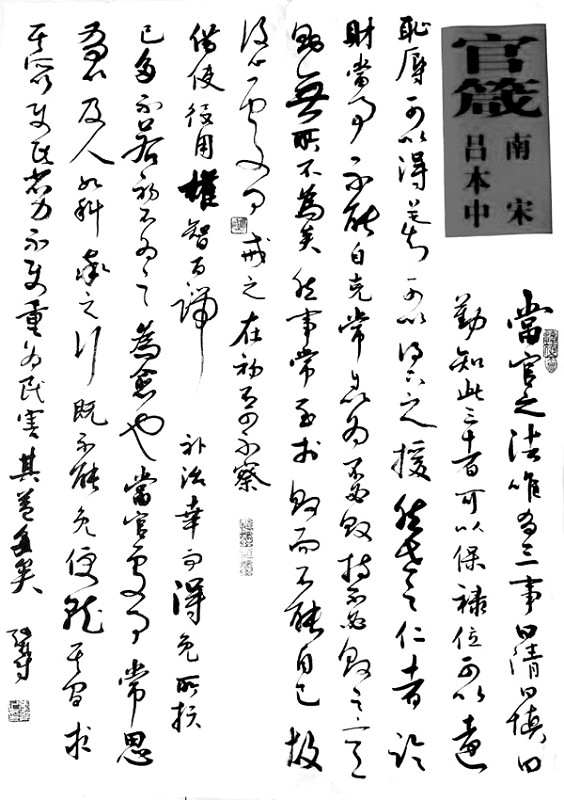 官箴
南宋
吕本中
當官之法唯為三事曰清曰慎曰
勤知此三者可以保祿位可以遠
恥辱可以得上之知可以得下之援然世之仁者臨
財當事不能自克常自以為不必敗持不必敗之意
則無所不為矣然事常至於敗而不能自已故
設心處事戒之在初不可不察
借使役用權智百端補治幸而得免所損
已多不若初不為之為愈也當官處事常思
有以及人如科率之行既不能免便就其間求
其所以使民省力不使重為民害其益多矣